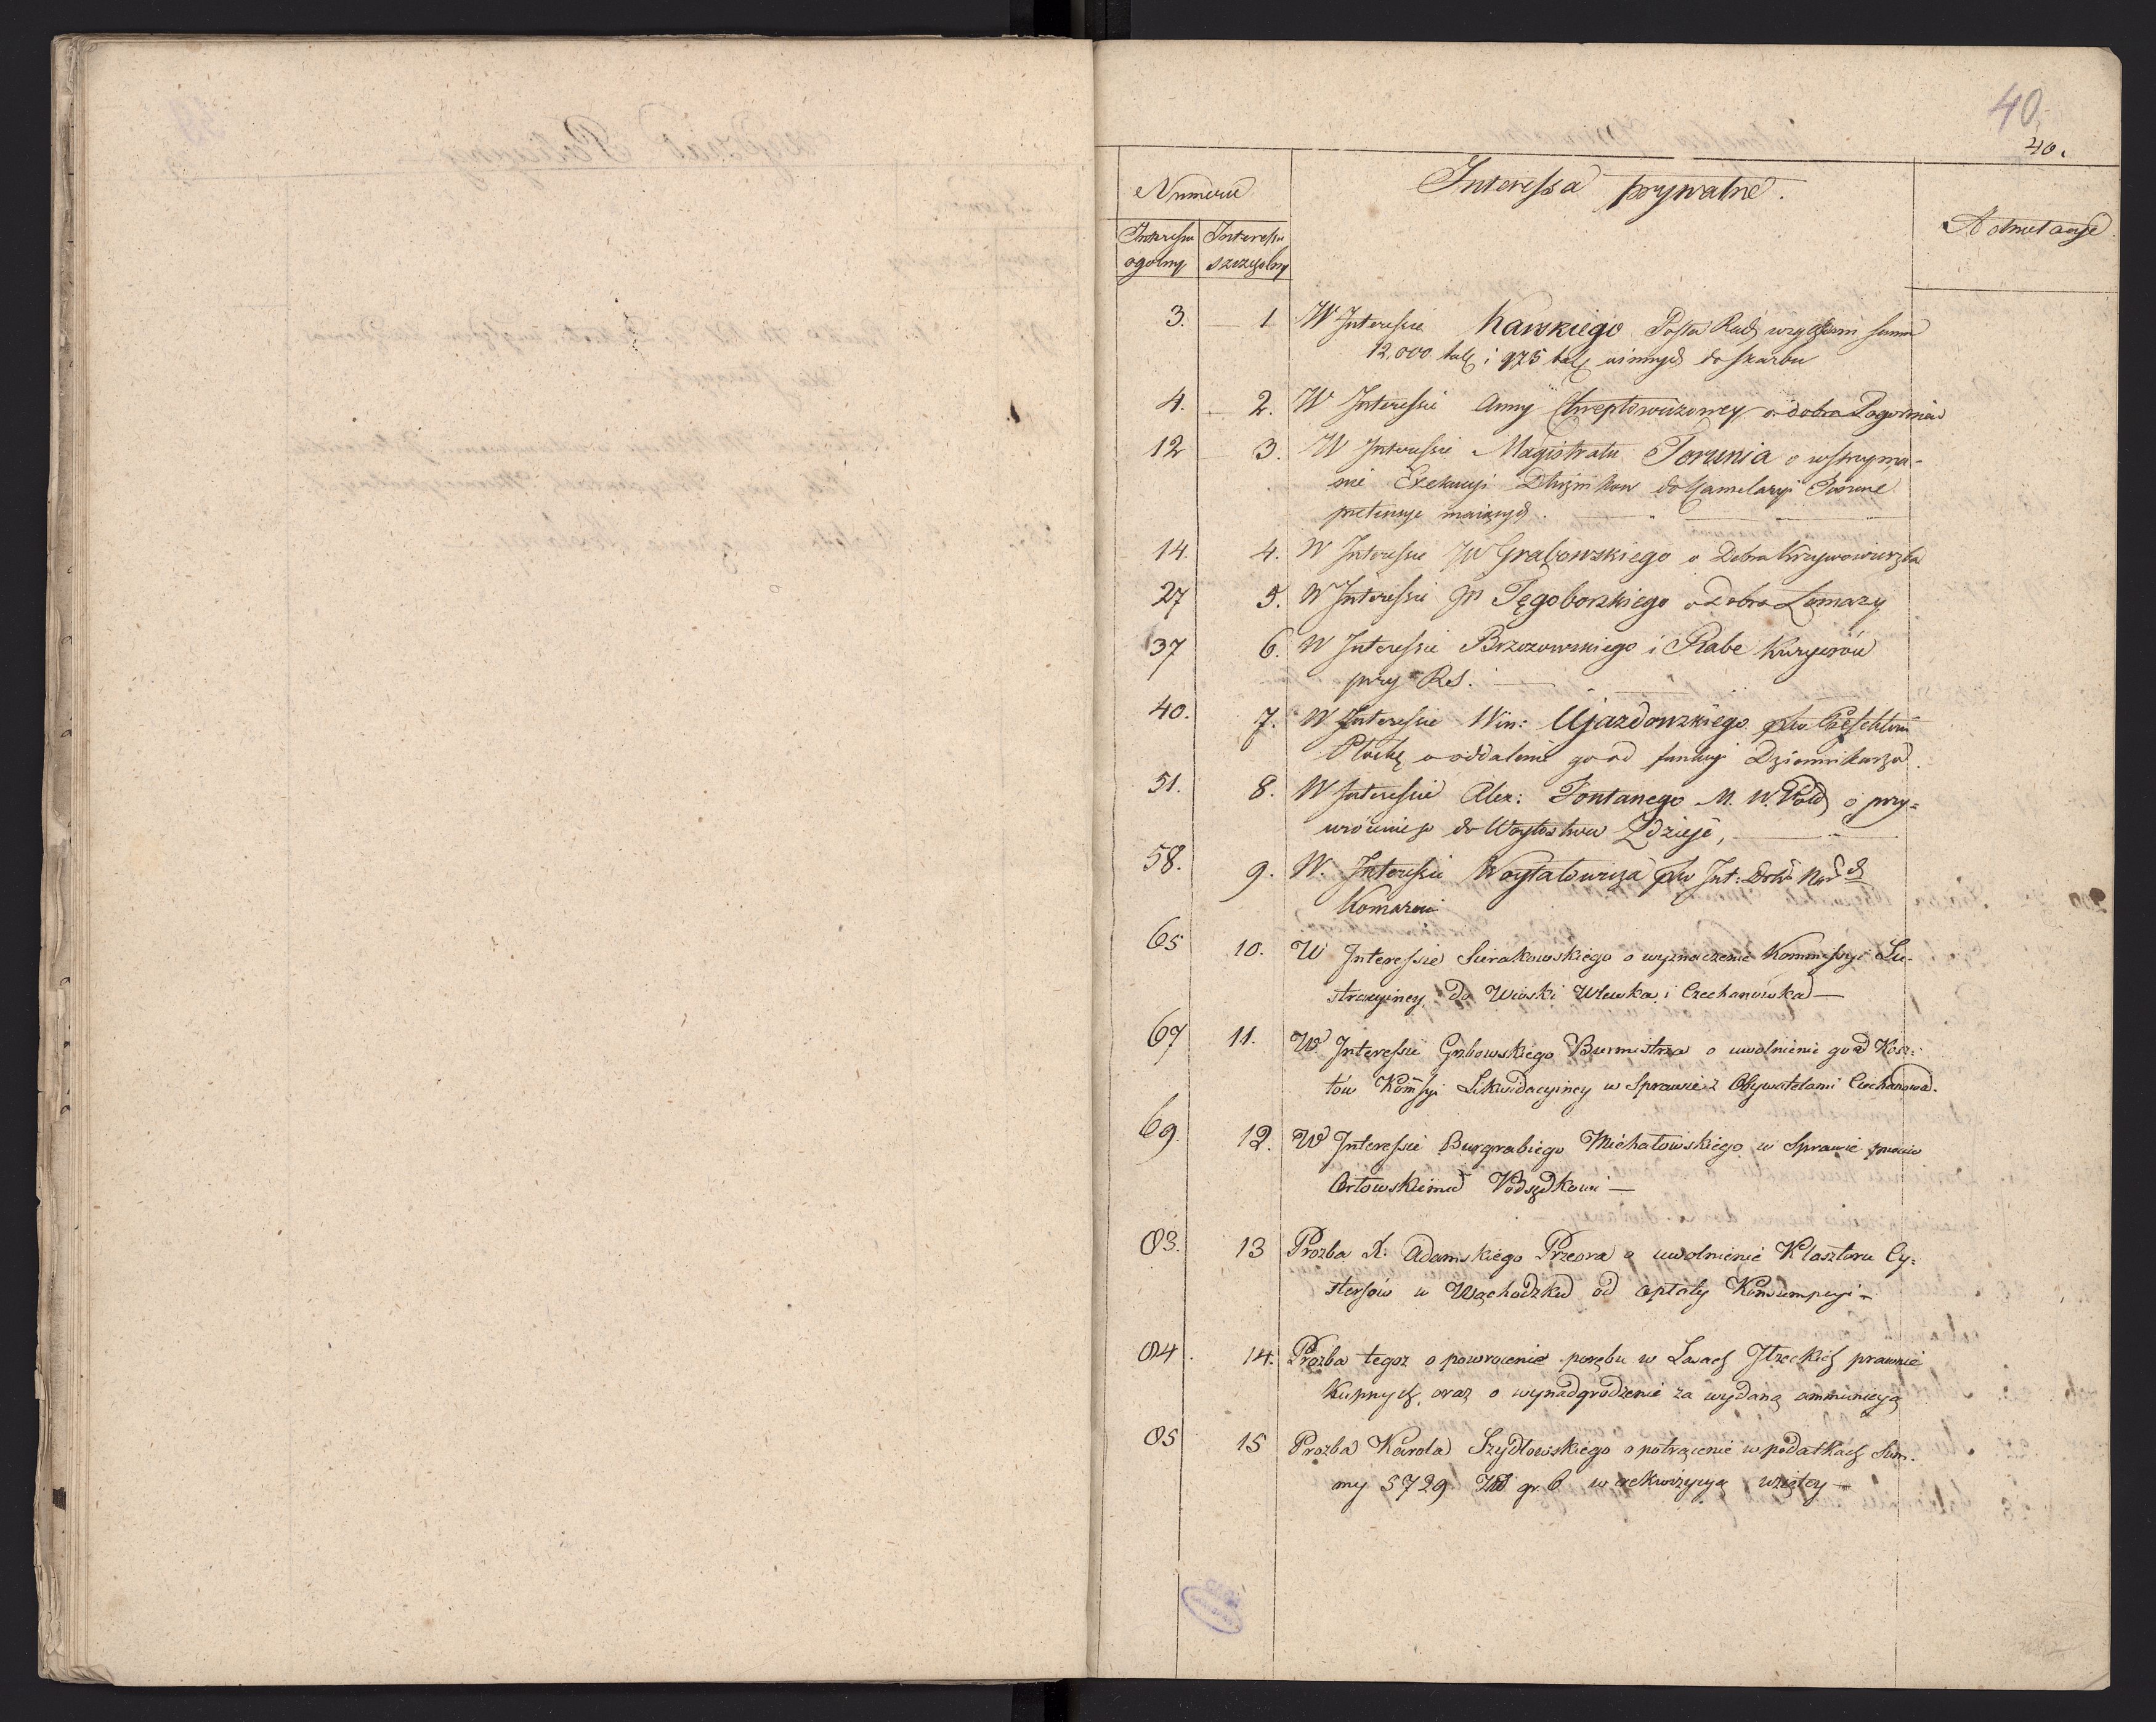 40
40.
Numera
Interessa prywatne.
Adnotacye
Interessu Interessu
ogolny szczegolny
3. 1 W Interessie Kawskiego Posła Rad względem summ
12,000 tal i 975 tal winnych do skarbu
4. 2. W Interessie Anny Chreptowiczowey o dobra
12 3. W Interessie Magistratu Torunia o wstrzyma-
nie Exekucyi Dłużnikow do Kamelaryi
pretensye maiących.
14. 4. W Interessie JW Grabowskiego o Dobra Krzywowierzba
27 5. W Interessie JP Tęgoborskiego o Dobra Łomazy
37 6. W Interessie Brzozowskiego i Rabe Kuryerów
przy RS.
40. 7. W Interessie Win: Ujazdowskiego plo Prefektowi
Płockę o oddalenie go od funkcyi Dziennikarza.
51. 8. W Interessie Alex: Fontanego M. W. o przy-
wrócenie do Woytostwa Zdzieje,
58. 9. W. Interessie Woytalowicza plo Int: Dóbr Nar
Komarow
65 10. W Interessie Sierakowskiego o wyznaczenie Kommissyi Lu-
stracyiney do Wioski Wlewska i Czechanowska —
67 11. W Interessie Grabowskiego Burmistrza o uwolnienie go od Kosz-
tów Kommsyi Likwidacyiney w Sprawie z Obywatelami Ciechanowa.
69. 12. W Interessie Burgrabiego Michałowskiego w Sprawie przeciw
Orłowskiemu Podsędkowi —
83. 13 Prozba X. Adamskiego Przeora o uwolnienie Klasztoru Cy-
stersów w Wąchodzku od opłaty Konsumpcyi —
84. 14. Prozba tegoz o powrocenie porębu w Lasach Iłzeckich prawnie
Kupnych, oraz o wynadgrodzenie za wydaną ammunicyą
85 15 Prozba Karola Szydłowskiego o potrącenie w podatkach Sum-
my 5729 Złł gr. 6 w rekwizycyą wziętey —